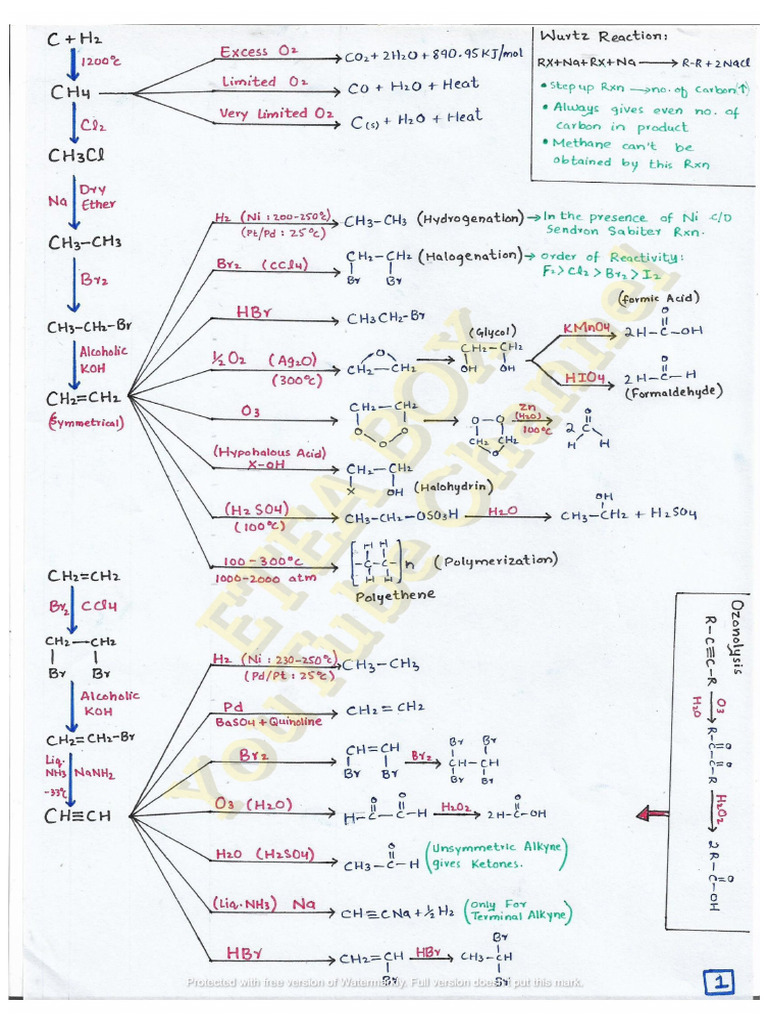 C + H2
1200°C
CH4
Excess O2
CO2 + 2H2O + 890.95 KJ/mol
Limited O2
CO + H2O + Heat
Very Limited O2
C(s) + H2O + Heat
Wurtz Reaction:
RX+Na+RX+Na → R-R + 2NaCl
• Step up Rxn → no. of Carbon(↑)
• Always gives even no. of
carbon in product
• Methane can't be
obtained by this Rxn
Cl2
CH3Cl
Na Dry
Ether
CH3-CH3
Br2
CH3-CH2-Br
Alcoholic
KOH
CH2=CH2
(Symmetrical)
H2 (Ni : 200-250°C)
(Pt/Pd : 25°C)
CH3-CH3 (Hydrogenation) → In the presence of Ni c/D
Sendron Sabiter Rxn.
Br2 (CCl4)
CH2-CH2 (Halogenation) → order of Reactivity:
Br Br
F2 > Cl2 > Br2 > I2
HBr
CH3CH2-Br
½O2 (Ag2O)
(300°C)
O
CH2-CH2
(Glycol)
CH2-CH2
OH OH
KMnO4
(formic Acid)
O
2H-C-OH
HIO4
O
2H-C-H
(Formaldehyde)
O3
CH2-CH2
O O O
O O
CH2 CH2
O
Zn
(H2O)
100°C
O
2 C
H H
(Hypohalous Acid)
X-OH
CH2-CH2
X OH (Halohydrin)
(H2SO4)
(100°C)
CH3-CH2-OSO3H
H2O
OH
CH3-CH2 + H2SO4
100-300°C
1000-2000 atm
H H
[-C-C-]n (Polymerization)
H H
Polyethene
CH2=CH2
Br2 CCl4
CH2-CH2
Br Br
Alcoholic
KOH
CH2=CH2-Br
Liq.
NH3 NaNH2
-33°C
CH≡CH
H2 (Ni : 230-250°C)
(Pd/Pt : 25°C)
CH3-CH3
Pd
BaSO4 + Quinoline
CH2=CH2
Br2
CH=CH
Br Br
Br2
Br Br
CH-CH
Br Br
O3 (H2O)
O O
H-C-C-H
H2O2
O
2H-C-OH
H2O (H2SO4)
O
CH3-C-H
(Unsymmetric Alkyne)
gives Ketones.
(Liq.NH3) Na
CH≡CNa + ½H2
(only For
Terminal Alkyne)
HBr
CH2=CH
Br
HBr
Br
CH3-CH
Br
Ozonolysis
R-C≡C-R
O3
H2O
O O
R-C-C-R
H2O2
O
2R-C-OH
ETEA BOX
YouTube Channel
Protected with free version of Watermarkly. Full version doesn't put this mark.
1